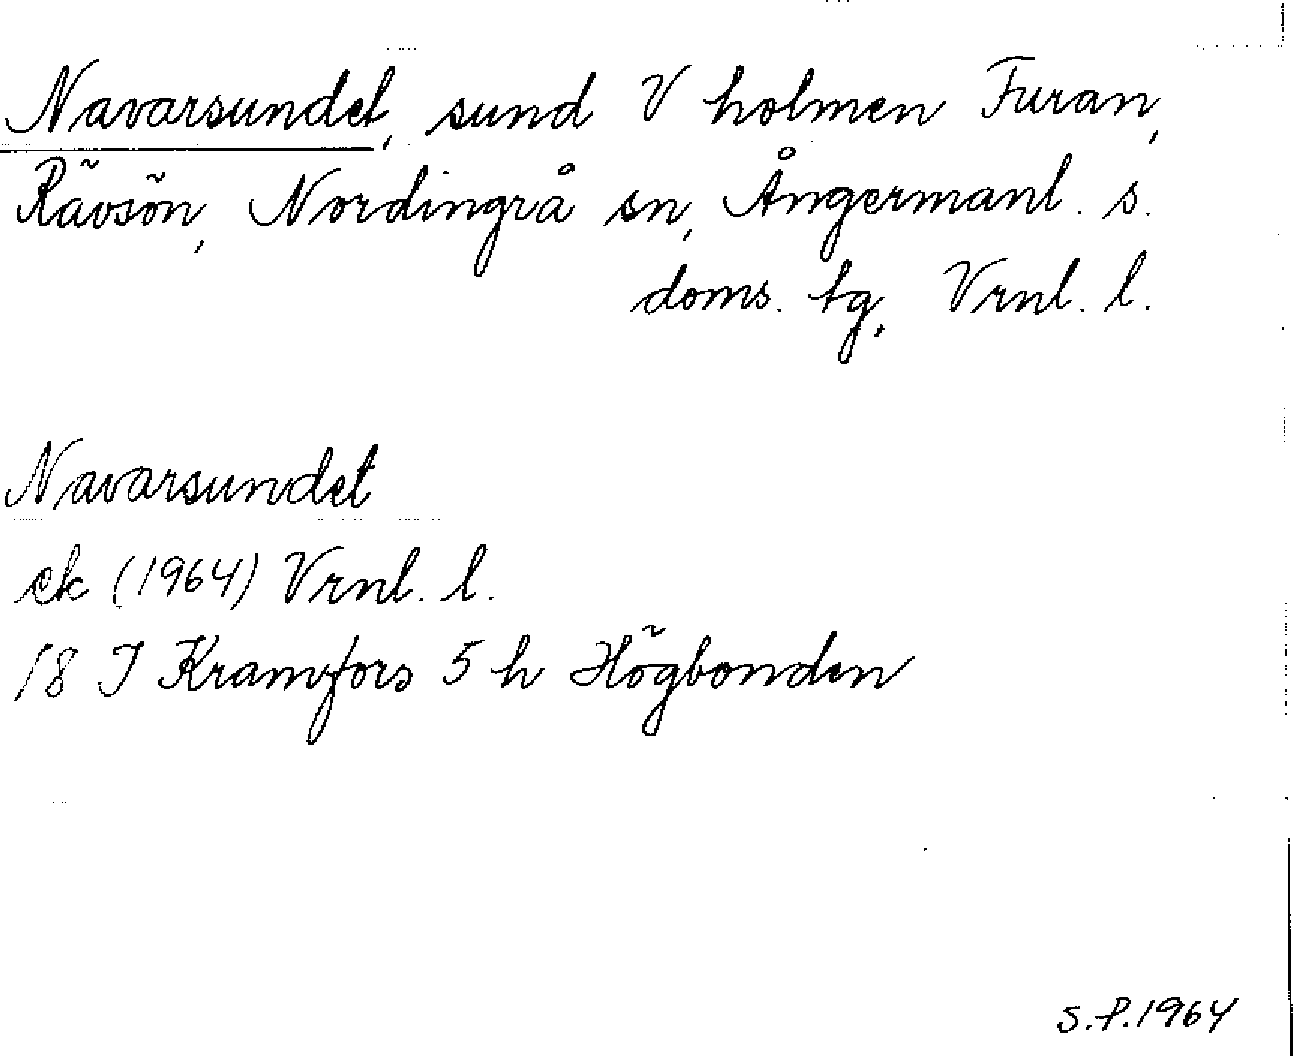 Navarsundet, sund V holmen Furan,
Rävsön, Nordingrå sn, Ångermanl. s.
doms. tg, Vrnl. l.
Navarsundet
ek (1964) Vrnl. l.
18 I Kramfors 5 h Högbonden
S.P.1964